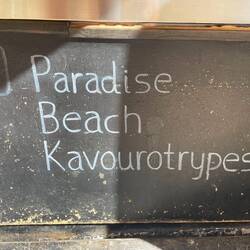 Paradise
Beach
Kavourotrypes